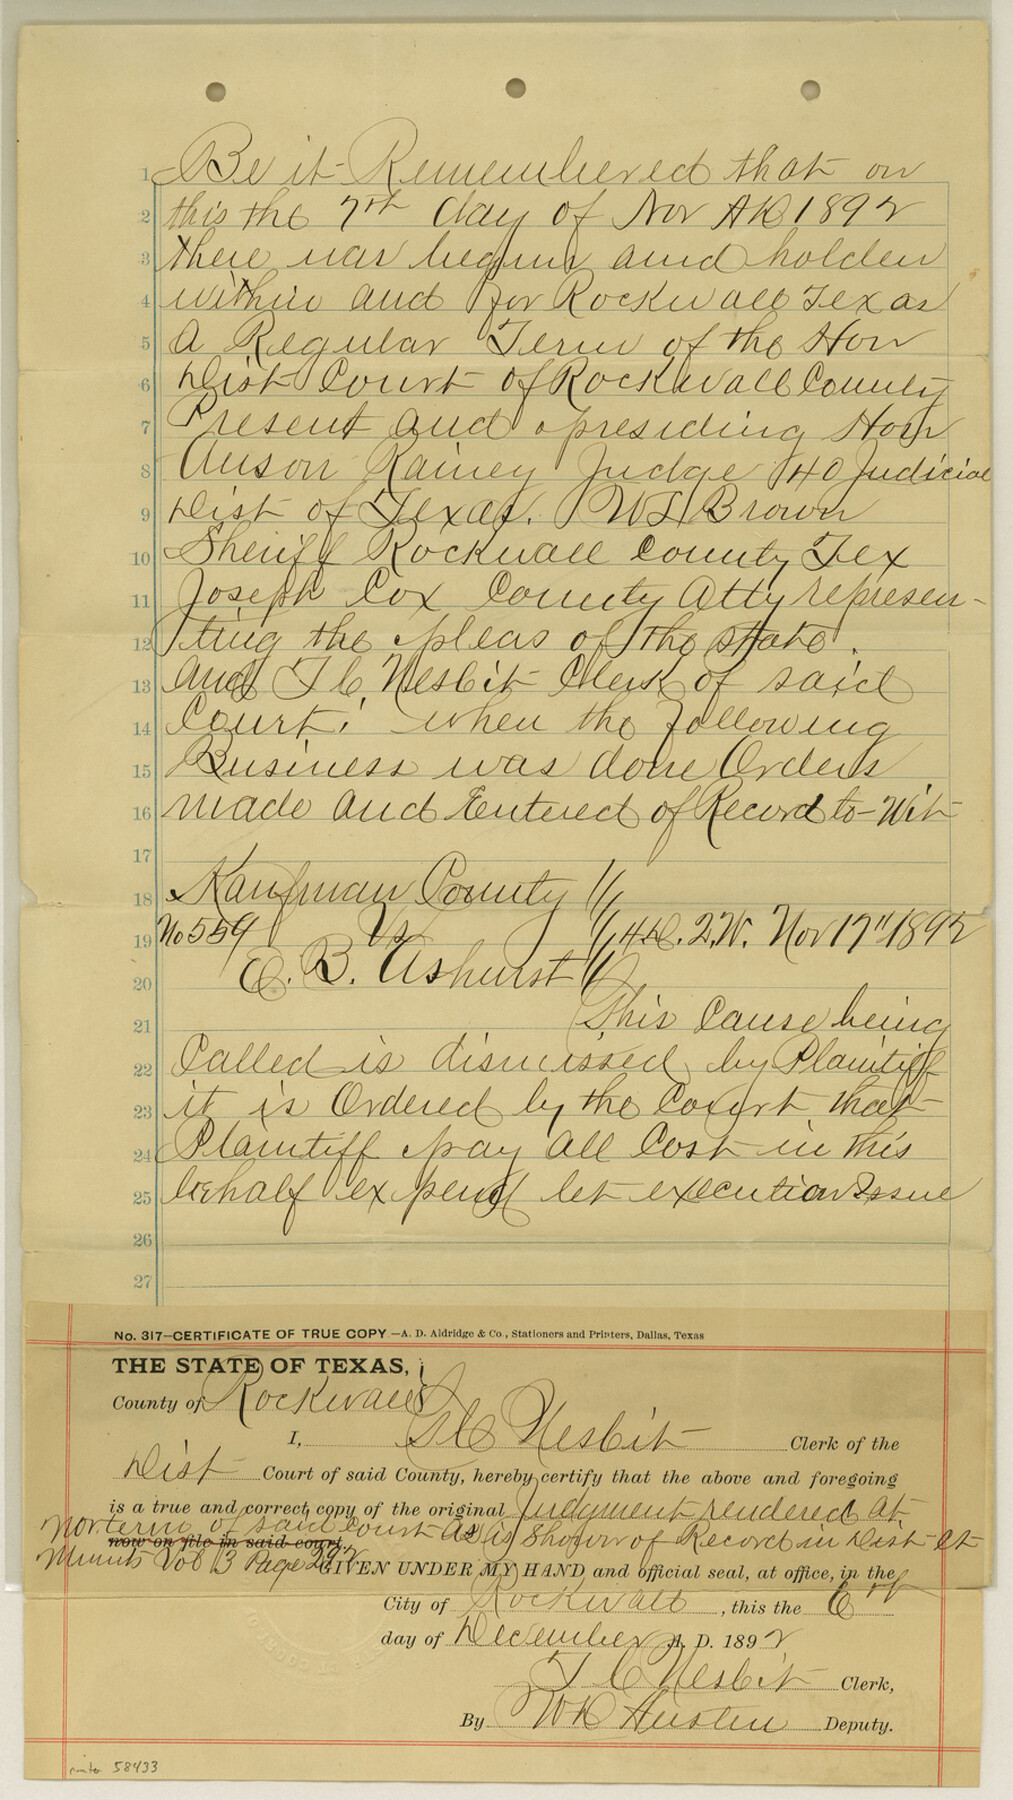 1 Be it Remembered that on
2 this the 7th day of Nov AD 1892
3 there was begun and holden
4 within and for Rockwall Texas
5 A Regular Term of the Hon
6 Dist Court of Rockwall County
7 Present and presiding Hon
8 Anson Rainey Judge 40 Judicial
9 Dist of Texas. W L Brown
10 Sheriff Rockwall County Tex
11 Joseph Cox County Atty represen-
12 ting the pleas of the state.
13 and T C Nesbit Clerk of said
14 Court, when the following
15 Business was done Orders
16 made and Entered of Record to-Wit
17
18 Kaufman County
19 No 559 Vs Nov 17" 1892
20 E. B. Ashurst
21 This Cause being
22 Called is dismissed by Plaintiff
23 it is Ordered by the Court that
24 Plaintiff pay all Cost in this
25 behalf expend let execution Issue
26
27
No. 317—CERTIFICATE OF TRUE COPY—A. D. Aldridge & Co., Stationers and Printers, Dallas, Texas
THE STATE OF TEXAS,
County of Rockwall
I, T C Nesbit Clerk of the
Dist Court of said County, hereby certify that the above and foregoing
is a true and correct copy of the original Judgment rendered at
Nov term of said Court as is Shown of Record in Dist Ct
now on file in said court.
Minuts Vol 3 Page 292 GIVEN UNDER MY HAND and official seal, at office, in the
City of Rockwall, this the 6th
day of December A. D. 1892
T C Nesbit Clerk,
By W D Austin Deputy.
counter 58433